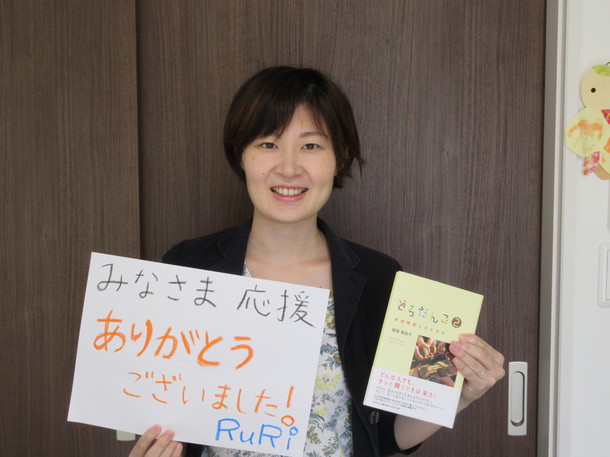 みなさま 応援
ありがとう
ございました!
RuRi
どろだんご2
どんな人でも、
きっと輝くときは来る!